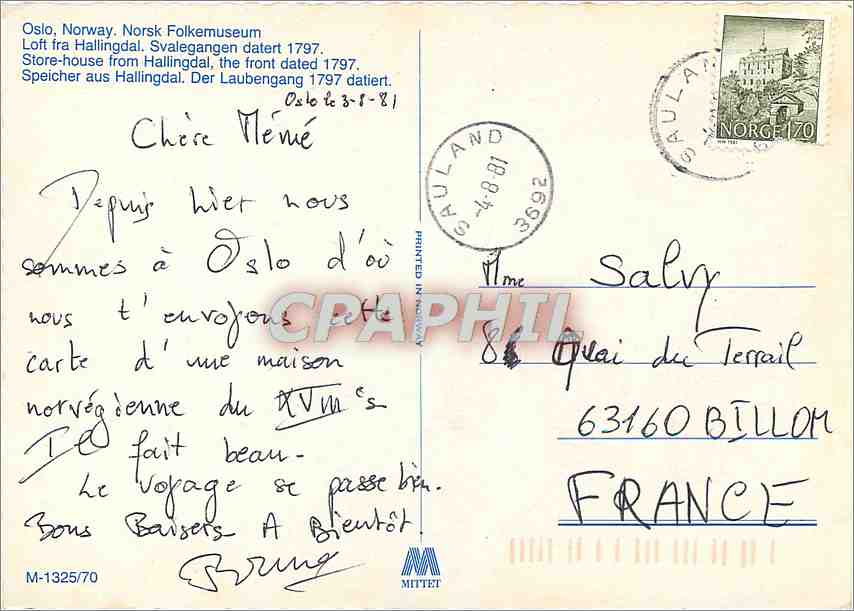 Oslo, Norway. Norsk Folkemuseum
Loft fra Hallingdal. Svalegangen datert 1797.
Store-house from Hallingdal, the front dated 1797.
Speicher aus Hallingdal. Der Laubengang 1797 datiert.
Oslo le 3-8-81
Chère Mémé
Depuis hier nous
sommes à Oslo d'où
nous t'envoyons cette
carte d'une maison
norvégienne du XVIIIe s
Il fait beau -
Le voyage se passe bien.
Bons Baisers A Bientôt.
Bruno
M-1325/70
PRINTED IN NORWAY
MITTET
SAULAND
-4-8-81
3692
SAULAND
NORGE 170
CPAPHIL
Mme Salvy
8 Quai du Terrail
63160 BILLOM
FRANCE